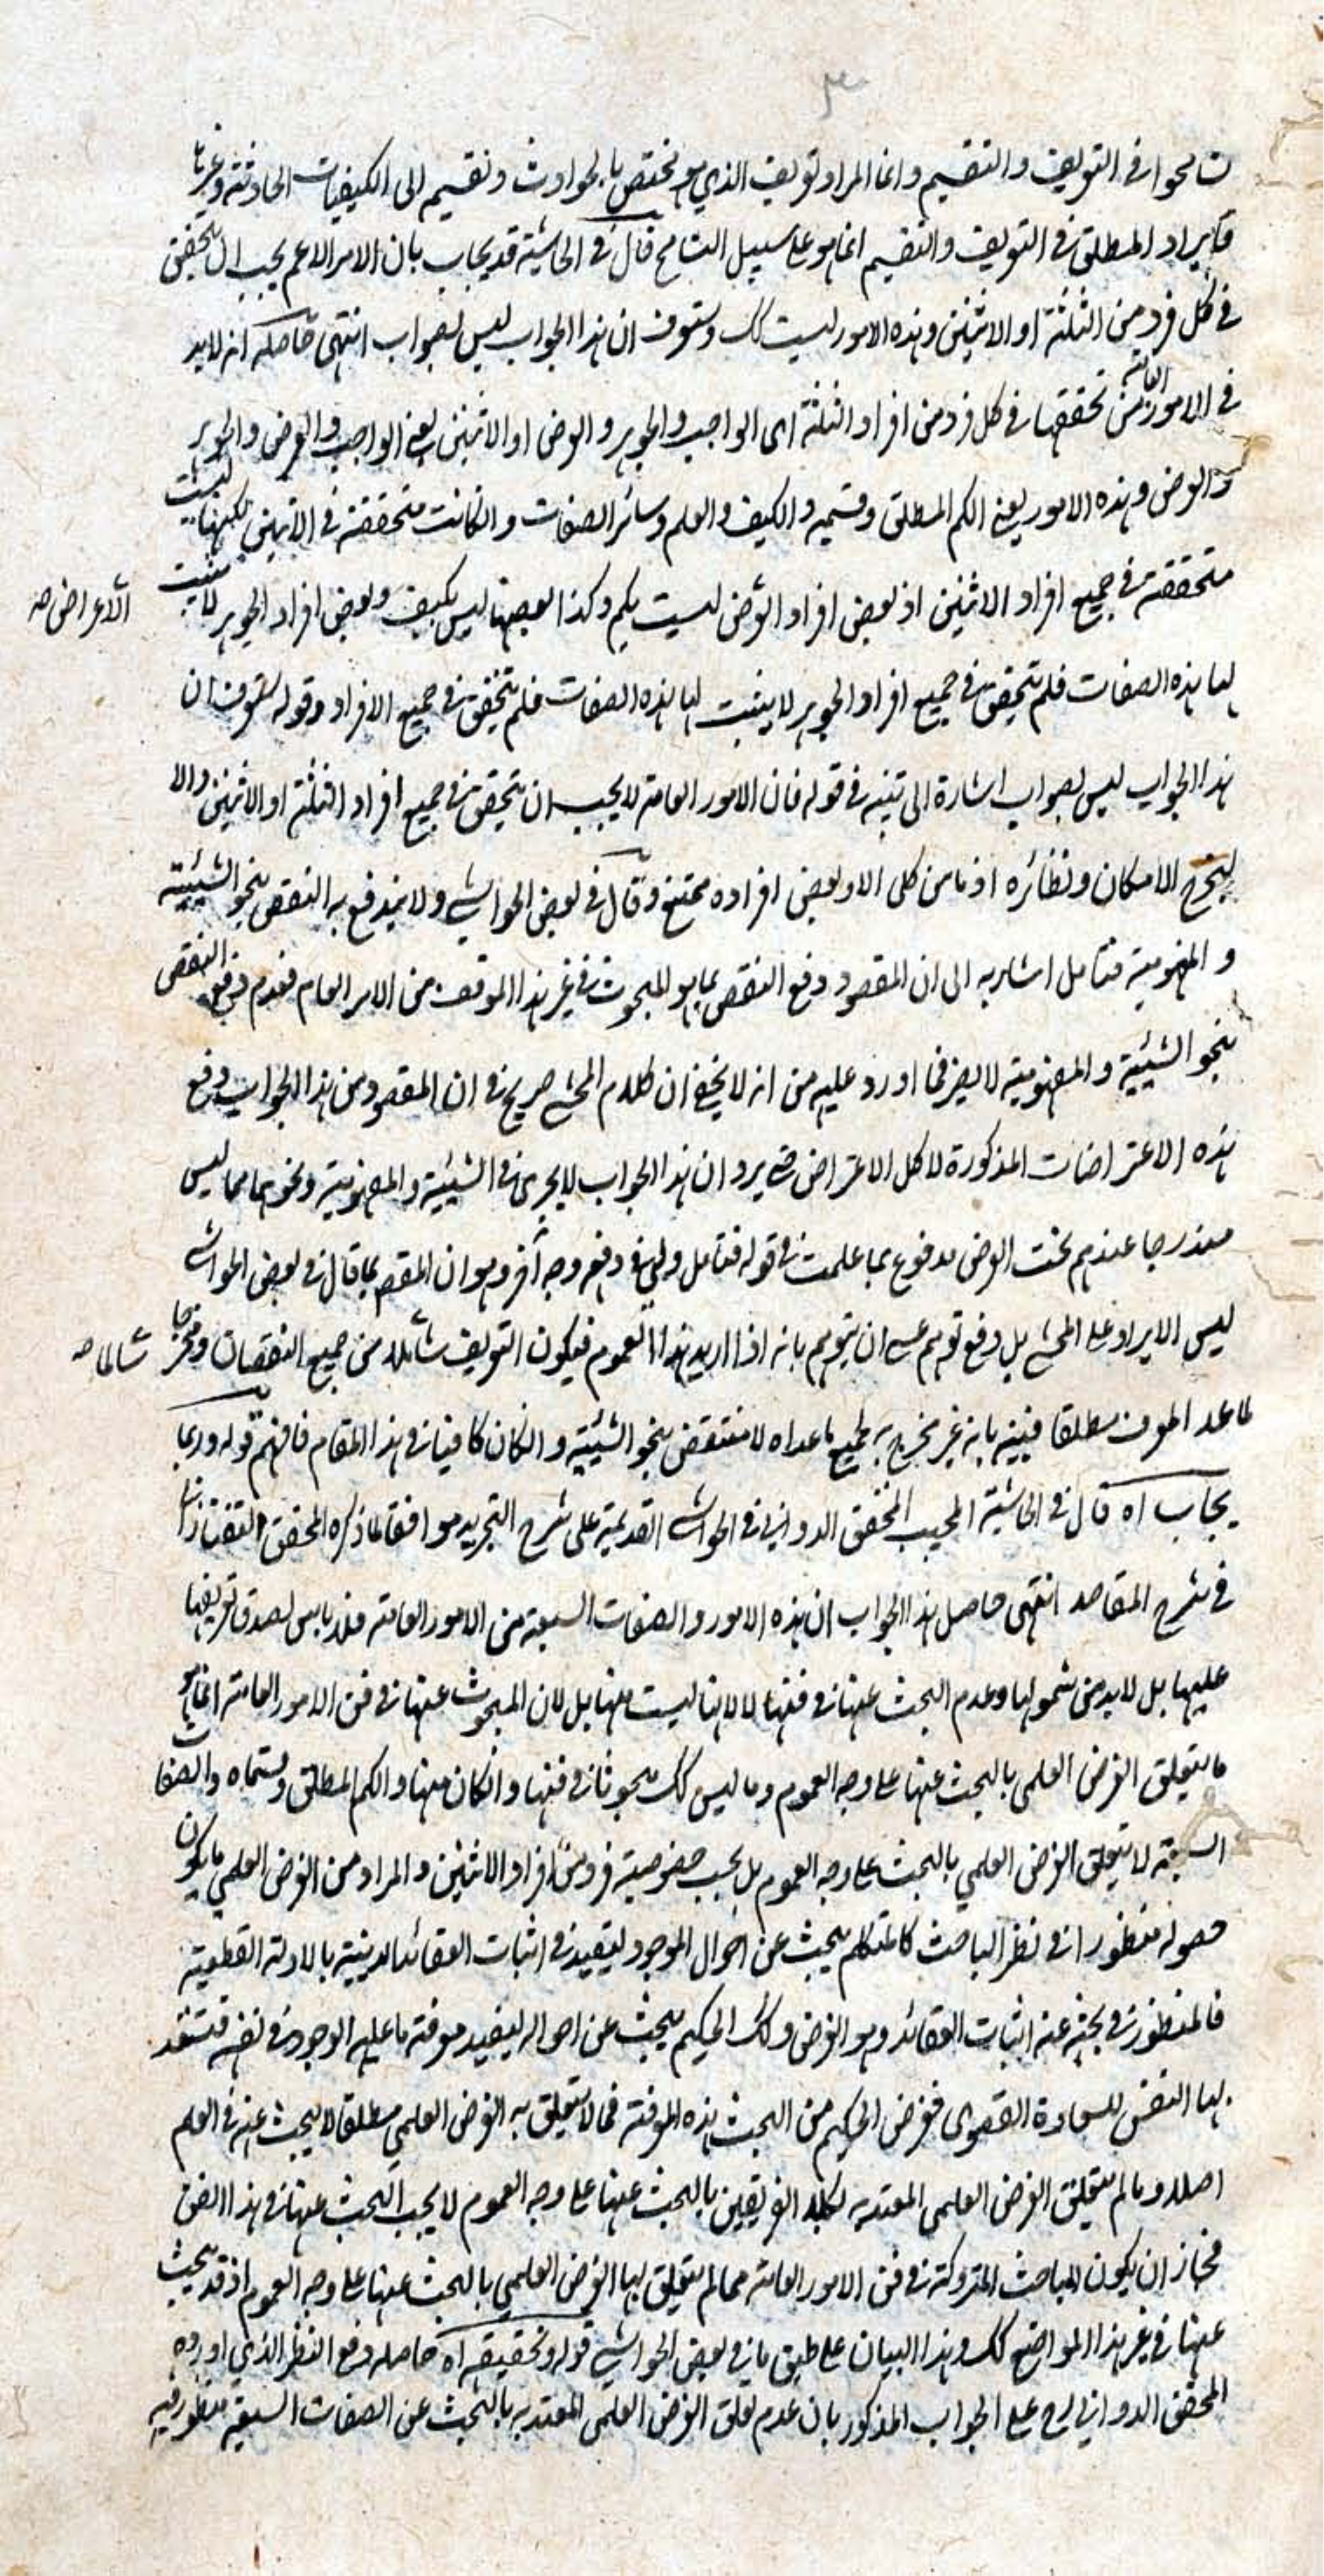 تسامحوا في التعريف والتقسيم وانما المراد تعريف الذي هو مختص بالحوادث وتقسيم الى الكيفيات الحادثة وغيرها
فايراد المطلق في التعريف والتقسيم انما هو على سبيل التسامح قال في الحاشية قد يجاب بان الامر الاعم يجب ان يتحقق
في كل فرد من الثلثة او الاثنين وهذه الامور ليست كك وستعرف ان هذا الجواب ليس بصواب انتهى حاصله انه لابد
في الامور العامة من تحققها في كل فرد من افراد الثلثة اى الواجب والجوهر والعرض او الاثنين يعني الواجب والعرض والجوهر
والعرض وهذه الامور يعني الكم المطلق وقسميه والكيف والعلم وسائر الصفات وانكانت متحققة في الاثنين لكنها ليست
متحققة في جميع افراد الاثنين اذ بعض افراد العرض ليست بكم وكذا بعضها ليس بكيف وبعض افراد الجوهر لا يثبت
الاعراض صه
لها هذه الصفات فلم يتحقق في جميع افراد الجوهر لا يثبت لها هذه الصفات فلم يتحقق في جميع الافراد وقوله ستعرف ان
هذا الجواب ليس بصواب اشارة الى تنبيه في قوله فان الامور العامة لا يجب ان يتحقق في جميع افراد الثلثة او الاثنين والا
ليخرج الامكان ونظائره اذ ما من كلى الا وبعض افراده ممتنع وقال في بعض الحواشي ولا يندفع به النقض بنحو الشيئية
والمفهومية فتامل اشار به الى ان المقصود دفع النقض بما هو المبحوث في غير هذا الموقف من الامر العام فعدم دفع النقض
بنحو الشيئية والمفهومية لا يضر فما اورد عليه من انه لا يخفى ان كلام المحشي صريح في ان المقصود من هذا الجواب دفع
هذه الاعتراضات المذكورة لا كل الاعتراض حتى يرد ان هذا الجواب لا يجرى في الشيئية والمفهومية ونحوهما مما ليس
مندرجا عندهم تحت العرض مدفوع بما علمت في قوله فتامل ولي في دفعه وجه آخر وهو ان المقصود بما قال في بعض الحواشي
ليس الايراد على المحشي بل دفع توهم عسى ان يتوهم بانه اذا اريد هذا العموم فيكون التعريف شاملا من جميع النقضات ومخرجا
شالما صه
لما عدا المعرف مطلقا فبينه بانه غير مخرج لجميع ما عداه لا منتقض بنحو الشيئية وانكان كافيا في هذا المقام فافهم قوله وربما
يجاب اه قال في الحاشية المجيب المحقق الدواني في الحواشي القديمة على شرح التجريد موافقا لما ذكره المحقق التفتازاني
في شرح المقاصد انتهى حاصل هذا الجواب ان هذه الامور والصفات السبعة من الامور العامة فلا باس لصدق تعريفها
عليها بل لابد من شمولها وعدم البحث عنها في فنها لا لانها ليست منها بل لان المبحوث عنها في فن الامور العامة انما هو
ما يتعلق الغرض العلمى بالبحث عنها على وجه العموم وما ليس كك مبحوثا في فنها وانكان منها والكم المطلق وقسماه والصفات
السبعة لا يتعلق الغرض العلمي بالبحث على وجه العموم بل بحسب خصوصية فرد من افراد الاثنين والمراد من الغرض العلمي ما يكون
حصوله منظورا في نظر الباحث كالمتكلم يبحث عن احوال الموجود ليفيد في اثبات العقائد الدينية بالادلة القطعية
فالمنظور في بحثه عنه اثبات العقائد وهو الغرض وكك الحكيم يبحث عن احواله ليفيد معرفة ما عليه الوجود في نفسه فتستعد
بها النفس للسعادة القصوى فغرض الحكيم من البحث هذه المعرفة فما لا يتعلق به الغرض العلمي مطلقا لا يبحث عنه في العلم
اصلا وما لم يتعلق الغرض العلمى المعتد به لكلا الفريقين بالبحث عنها على وجه العموم لا يجب البحث عنها في هذا الفن
فجاز ان يكون المباحث المتروكة في فن الامور العامة مما لم يتعلق بها الغرض العلمي بالبحث عنها على وجه العموم اذ قد يبحث
عنها في غير هذا المواضع كك وهذا البيان على طبق ما في بعض الحواشي قوله وتحقيقه اه حاصله دفع النظر الذي اورده
المحقق الدواني رح على الجواب المذكور بان عدم تعلق الغرض العلمى المعتد به بالبحث عن الصفات السبعة منظور فيه